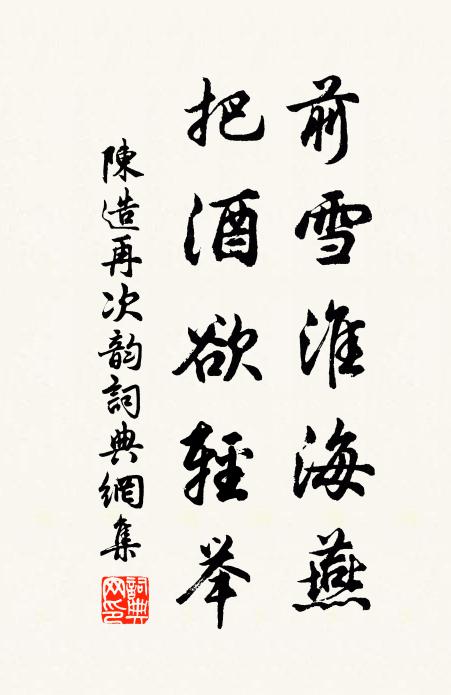 前雪淮海燕
把酒欲輕举
陳造再次韵詞典網集
詞典網印